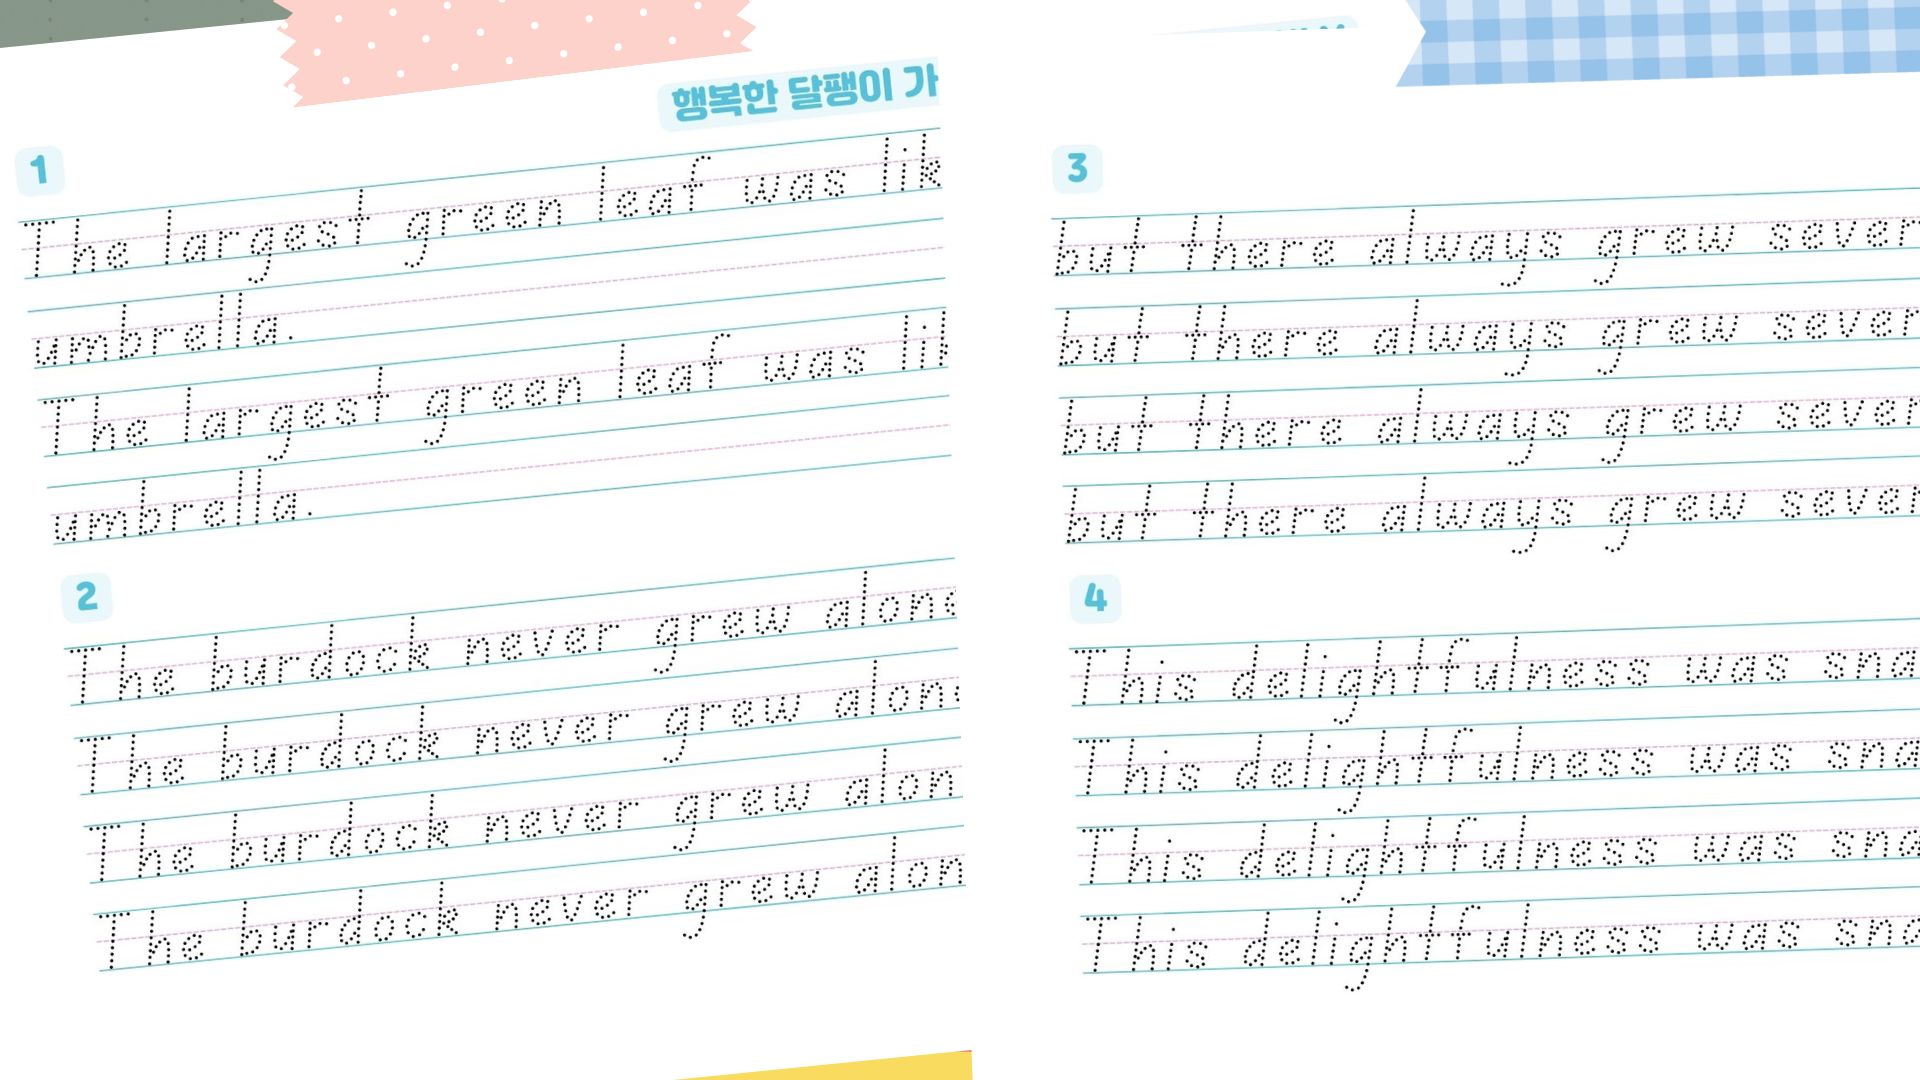 행복한 달팽이 가
1
The largest green leaf was lik
umbrella.
The largest green leaf was lik
umbrella.
2
The burdock never grew alone
The burdock never grew alon
The burdock never grew alon
The burdock never grew alon
3
but there always grew sever
but there always grew sever
but there always grew sever
but there always grew sever
4
This delightfulness was sna
This delightfulness was sna
This delightfulness was sna
This delightfulness was sna